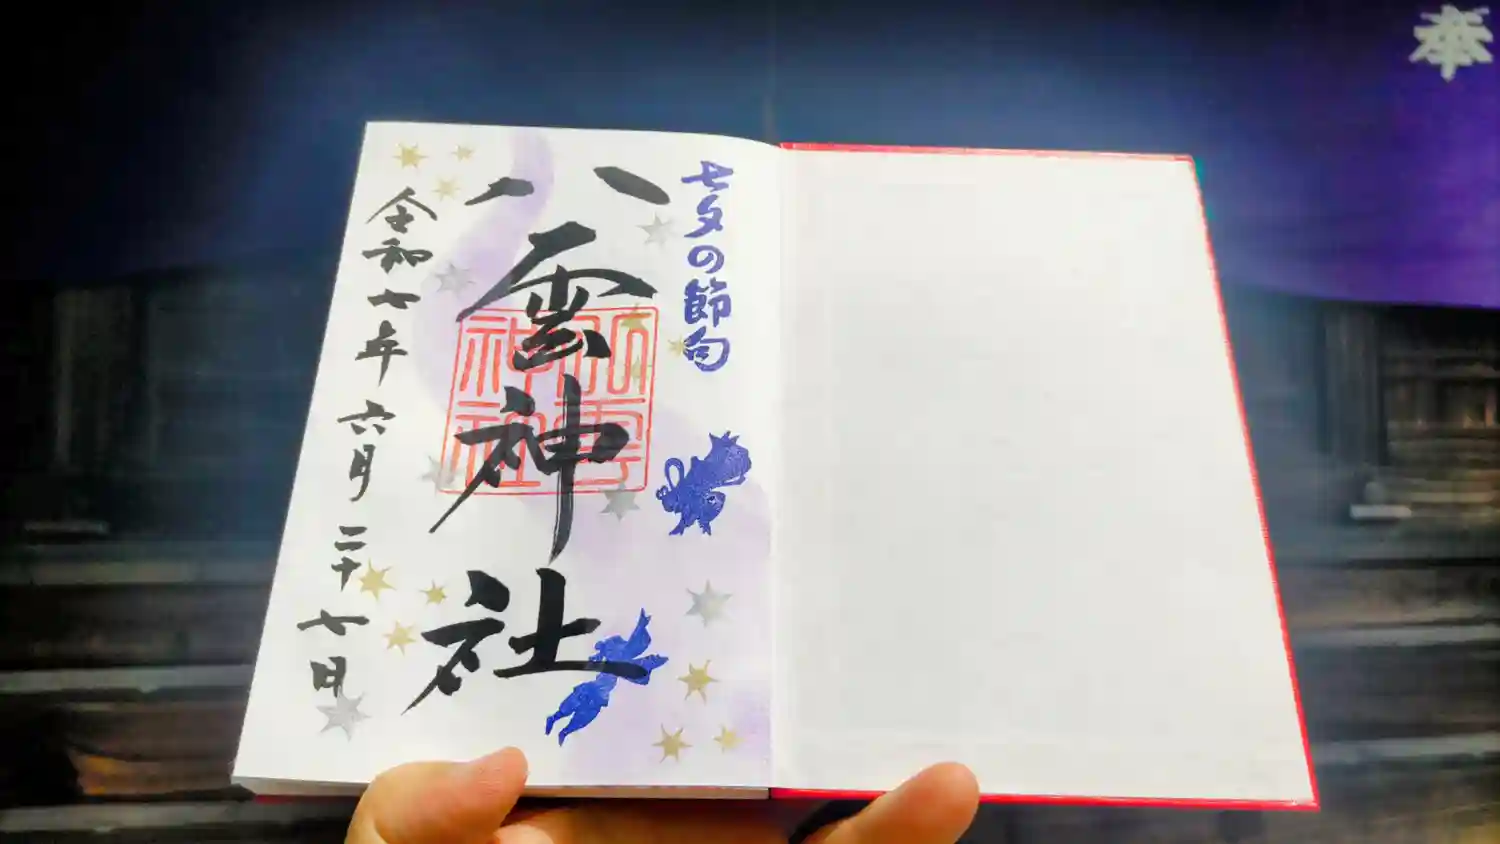 七夕の節句
八雲神社
八雲神社
令和七年六月二十七日
奉